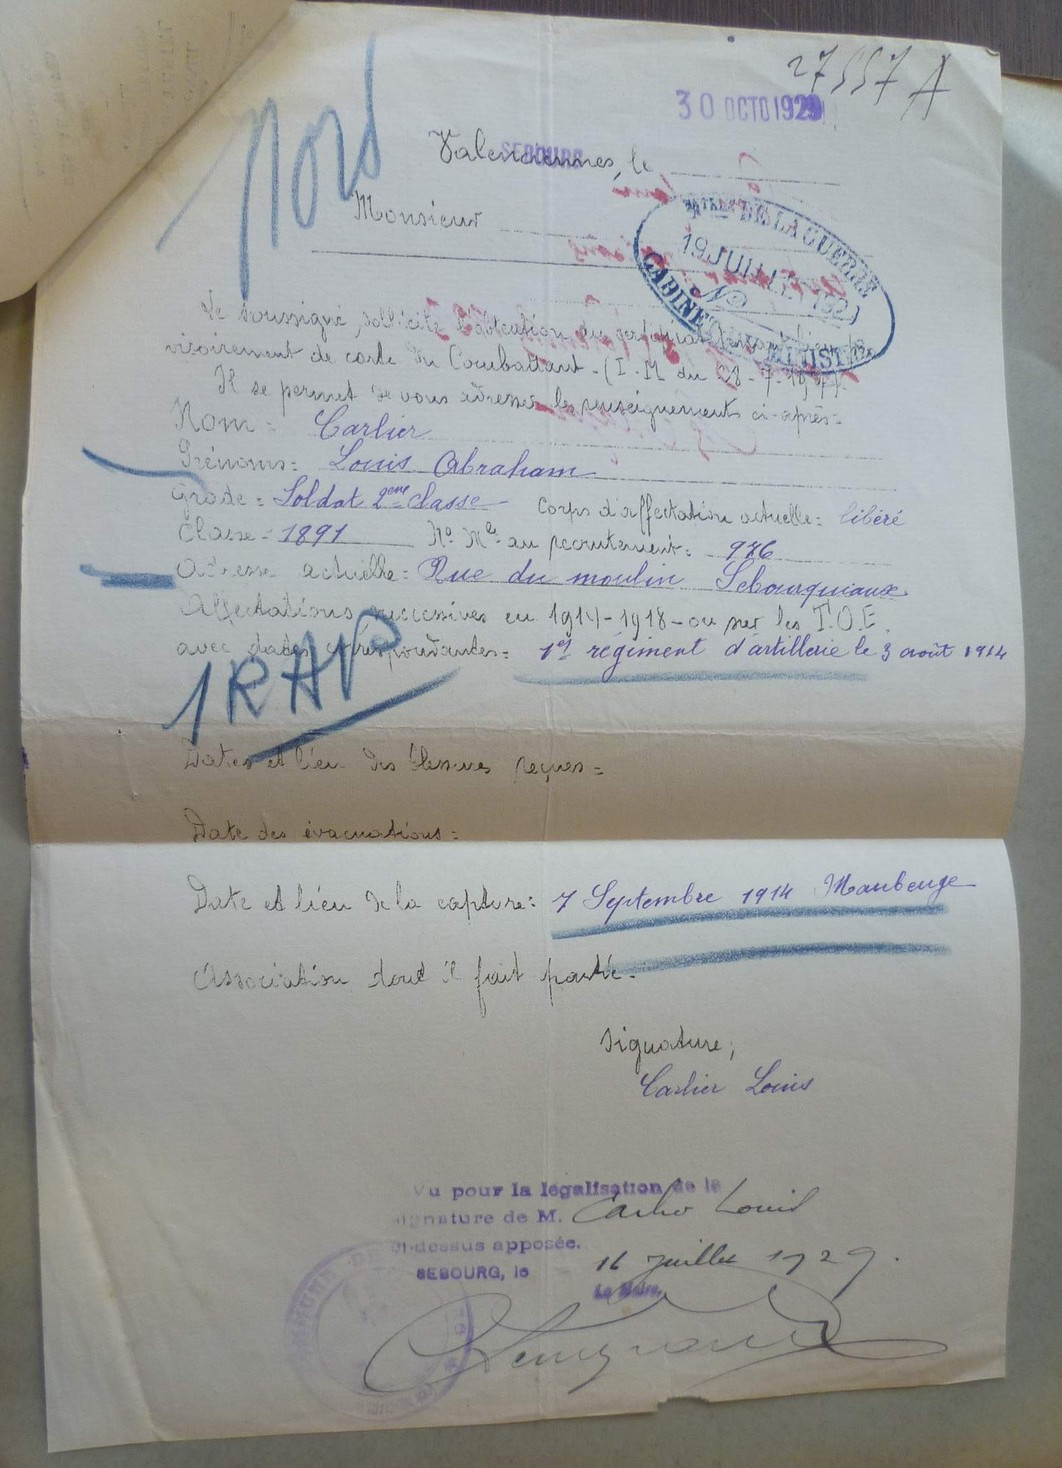 27557 A
30 OCTO 1929
Nord
SEBOURG
Valenciennes, le
Monsieur
DE LA GUERRE
19 JUIL
CABINET DU MINISTRE
Le soussigné, sollicite l'obtention du certificat
visoirement de carte du Combattant - (I.M. du 28-7-19
Il se permet de vous adresser les renseignements ci-après:
Nom = Carlier
Prénoms: Louis Abraham
Grade = Soldat 2eme classe Corps d'affectation actuelle: libéré
Classe = 1891 No Mle au recrutement: 976
Adresse actuelle: Rue du moulin Sebourquiaux
Affectations successives en 1914-1918 - ou sur les T.O.E.
avec dates correspondantes = 1er régiment d'artillerie le 3 août 1914
1 RAP
Dates et lieu des blessures reçues =
Date des évacuations:
Date et lieu de la capture: 7 Septembre 1914 Maubeuge
Association dont il fait partie -
Signature;
Carlier Louis
Vu pour la législation de la
signature de M. Carlier Louis
ci-dessus apposée.
SEBOURG, le 16 Juillet 1929.
Le Maire,
COMMUNE DE